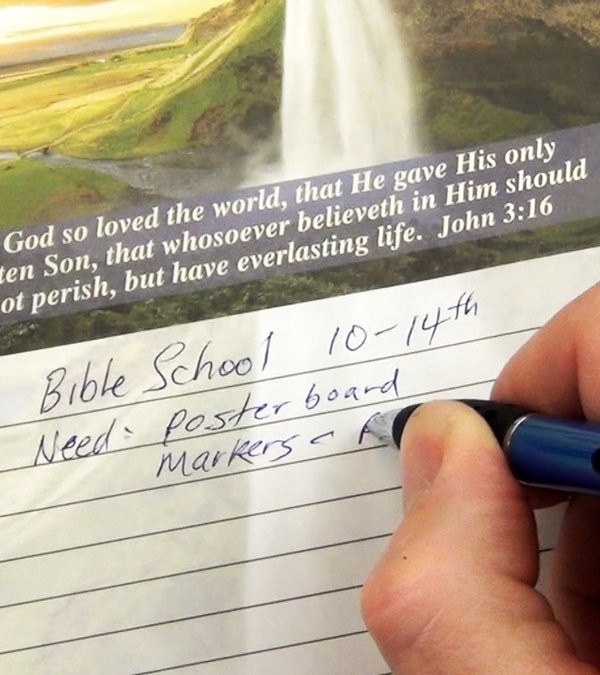 God so loved the world, that He gave His only
ten Son, that whosoever believeth in Him should
ot perish, but have everlasting life. John 3:16
Bible School 10-14th
Need: Poster board
Markers